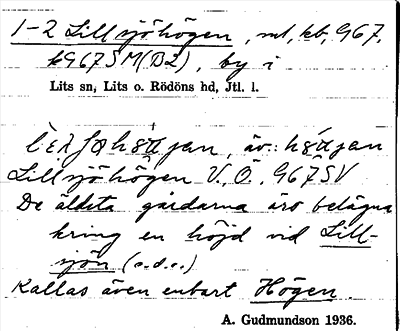 1-2 Lillsjöhögen, ml, kb, 967,
k967SM(B2), by i
Lits sn, Lits o. Rödöns hd, Jtl. l.
äv.:
Lillsjöhögen V. Ö. 967SV
De äldsta gårdarna äro belägna
kring en höjd vid Lill-
sjön (o.d.s.)
Kallas även enbart Högen.
A. Gudmundson 1936.